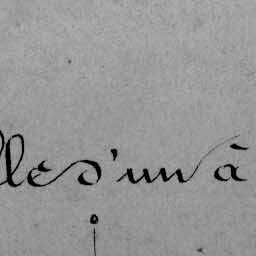 lle d'un à